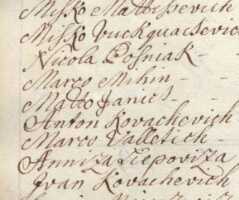 Misko Mattessevich
Misko Vuckquacsevich
Nicola Posniak -
Marco Mihin -
Matto Janics -
Anton Kovachevich
Marco Valletich
Anniza Liepovizza
Ivan Kovachevich